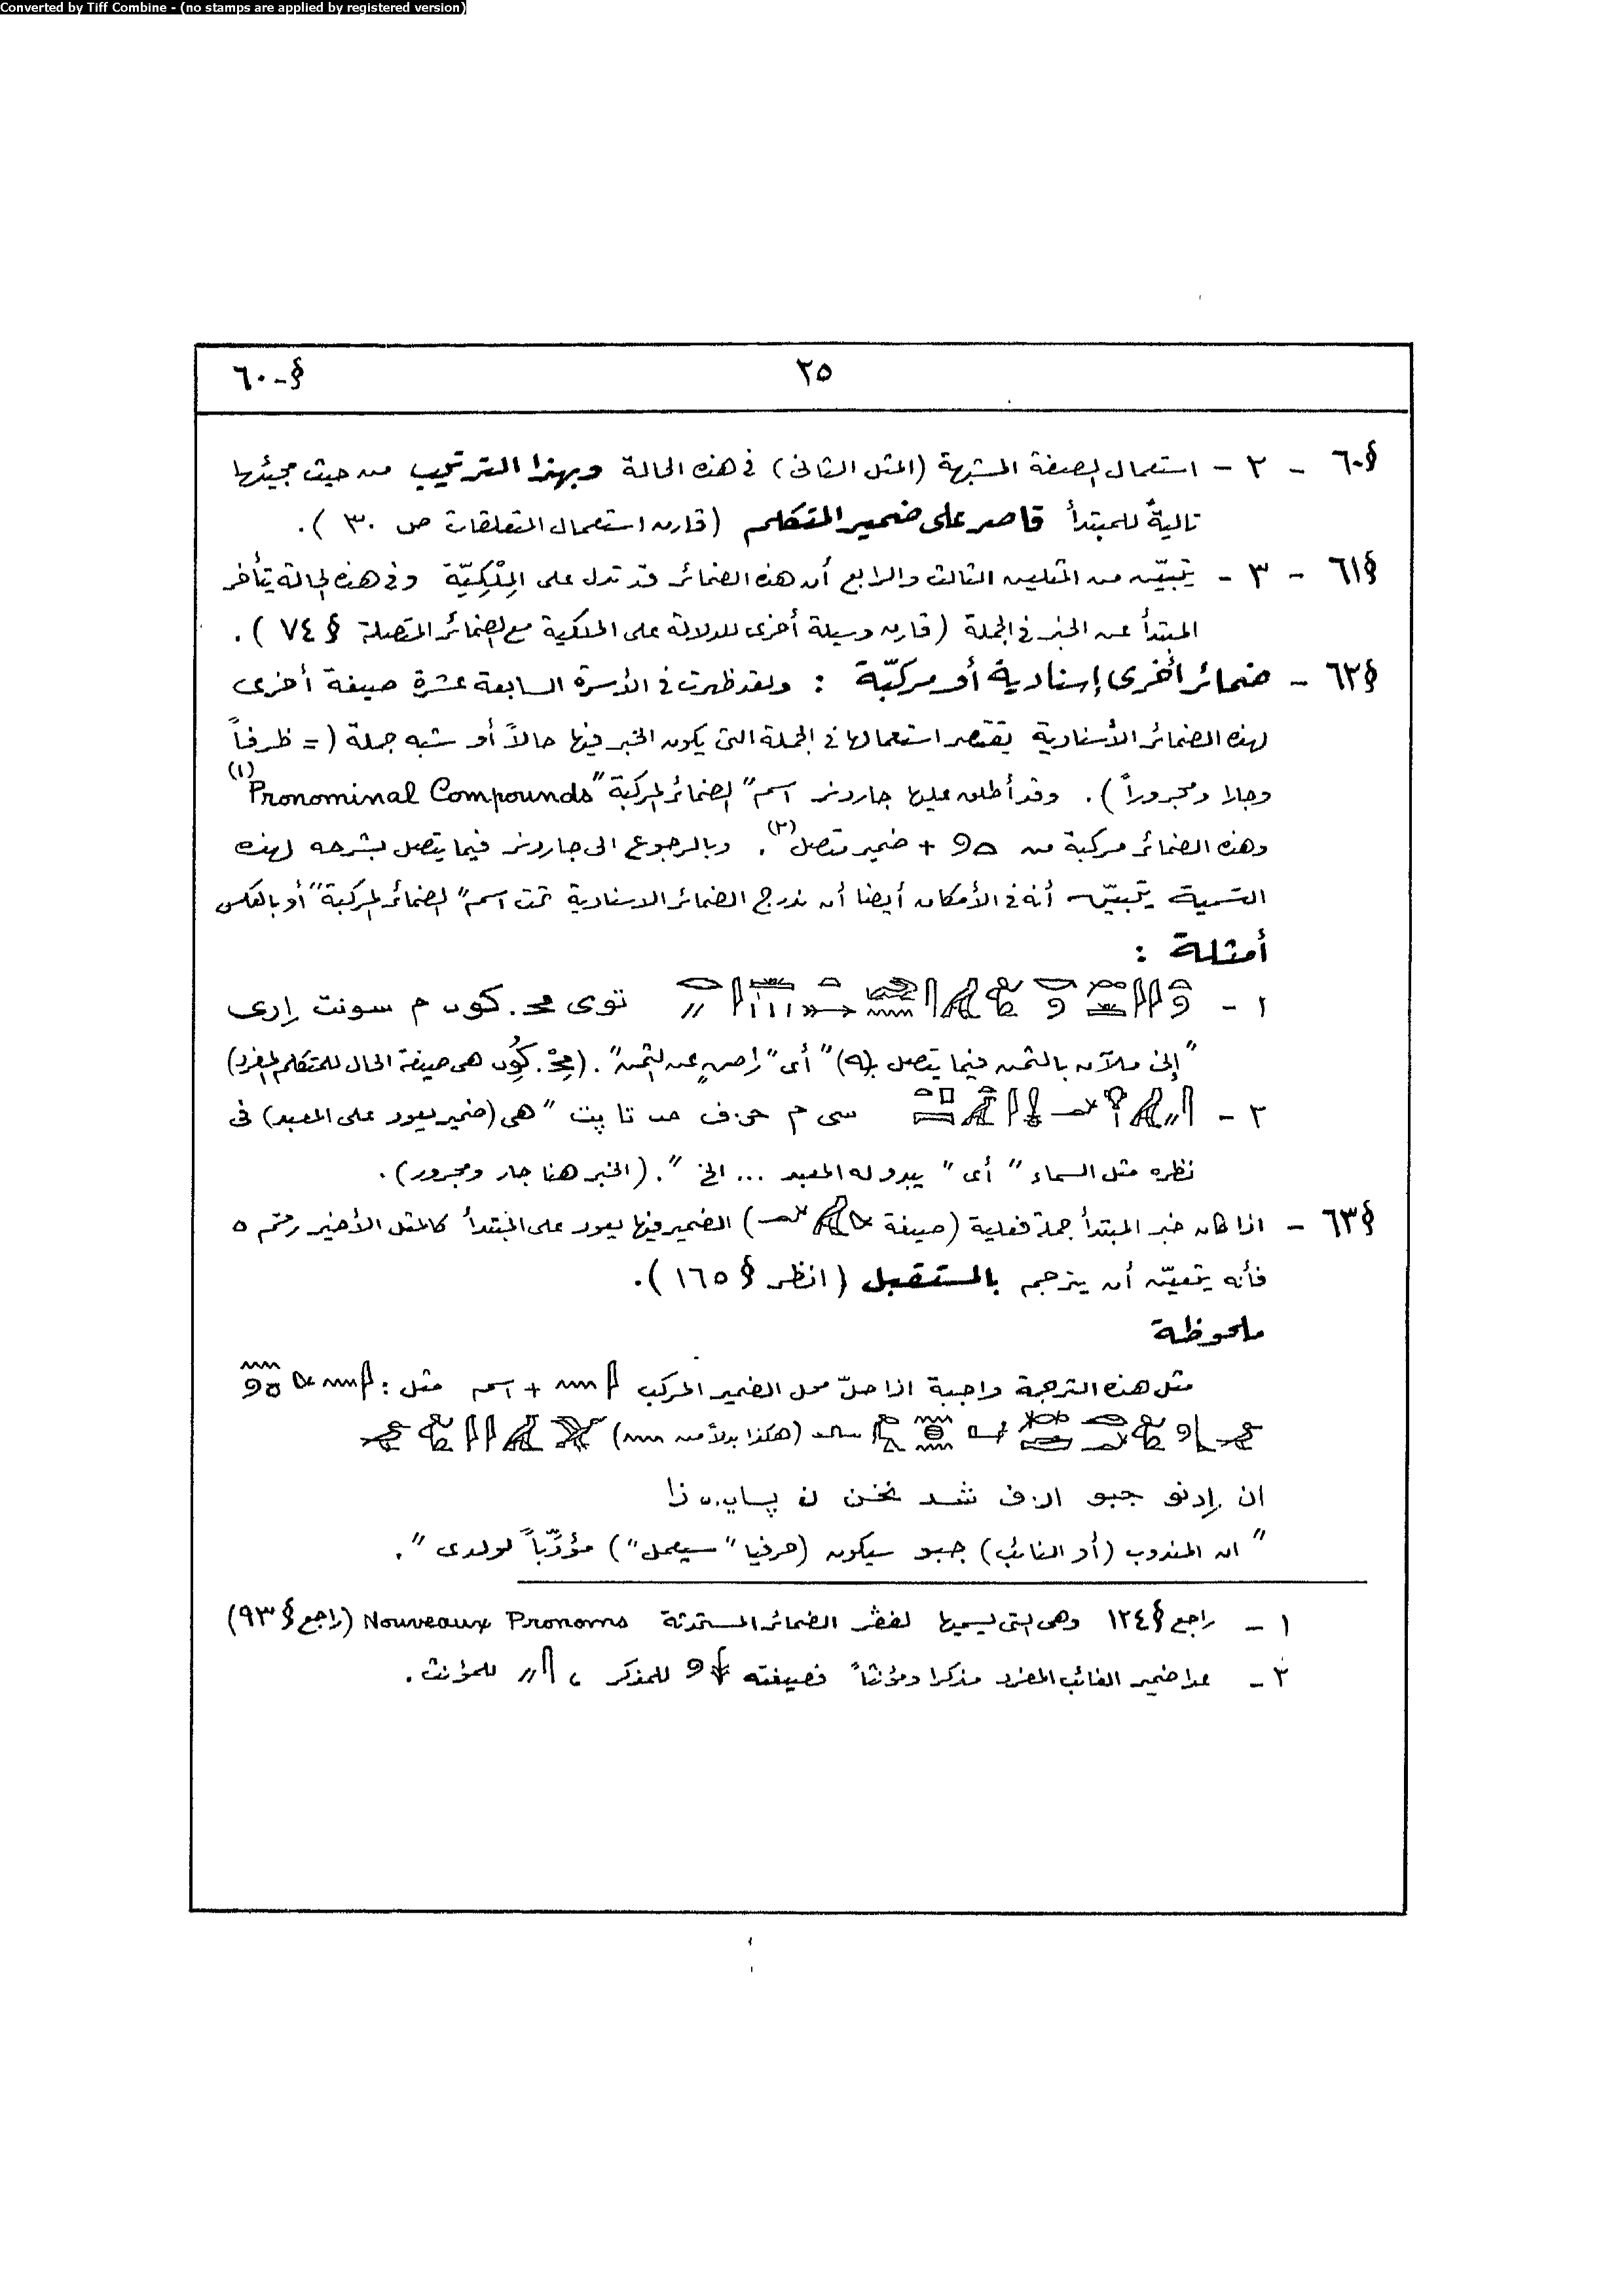 Converted by Tiff Combine - (no stamps are applied by registered version)
٢٥
§-٦٠
§٦٠ - ٢ - استعمال الصفة المشبهة (المثل الثانى) فى هذه الحالة وبهذا الترتيب من حيث مجيئها
تاليةً للمبتدأ قاصر على ضمير المتكلم (قارن استعمال المتعلقات ص ٣٠ ).
§٦١ - ٣ - يتبيّن من المثلين الثالث والرابع أن هذه الضمائر قد تدل على المِلْكِيّة وفى هذه الحالة يتأخر
المبتدأ عن الخبر فى الجملة (قارن وسيلة أخرى للدلالة على الملكية مع الضمائر المتصلة § ٧٤ ).
§٦٢ - ضمائر أخرى إسنادية أو مركبّة : ولقد ظهرت فى الأسرة السابعة عشرة صيغة أخرى
لهذه الضمائر الأسنادية يقتصر استعمالها فى الجملة التى يكون الخبر فيها حالاً أو شبه جملة ( = ظرفاً
وجارا ومجروراً ). وقد أطلق عليها جاردنر اسم "الضمائر المركبة" "Pronominal Compounds (١)
وهذه الضمائر مركبة من + ضمير متصل (٢). وبالرجوع الى جاردنر فيما يتصل بشرحه لهذه
التسمية يتبيّن أنه فى الأمكان أيضا أن ندرج الضمائر الاسنادية تحت اسم "الضمائر المركبة" أو بالعكس
أمثلة :
١ - توى مح. كون م سونت إرى
"إنى ملآن بالثمن فيما يتصل (به)" أى "راضٍ عن الثمن". (مِحْ. كُوِن هى صيغة الحال للمتكلم المفرد)
٢ - سى م حر.ف مد تا پت "هى (ضمير يعود على المعبد) فى
نظره مثل السماء" أى "يبدو له المعبد ... الخ ". (الخبر هنا جار ومجرور).
§٦٣ - اذا كان خبر المبتدأ جملة فعلية (صيغة ) الضمير فيها يعود على المبتدأ كالمثل الأخير رقم ٥
فأنه يتعيّن أن يترجم بالمستقبل (انظر § ١٦٥ ).
ملحوظة
مثل هذه الترجمة واجبة اذا حلّ محل الضمير المركب + اسم مثل :
(هكذا بدلاً من )
ان إدنو جبو ار.ف شد نخن ن پساى. زا
"ان المندوب (أو النائب) جبو سيكون (حرفيا "سيعمل") مؤدّباً لولدى ".
١ - راجع § ١٢٤ وهى التى يسميها لفڤر الضمائر المستحدثة Nouveaux Pronoms (راجع § ٩٣)
٢ - عدا ضمير الغائب المفرد مذكرا ومؤنثاً فصيغته للمذكر ، للمؤنث.